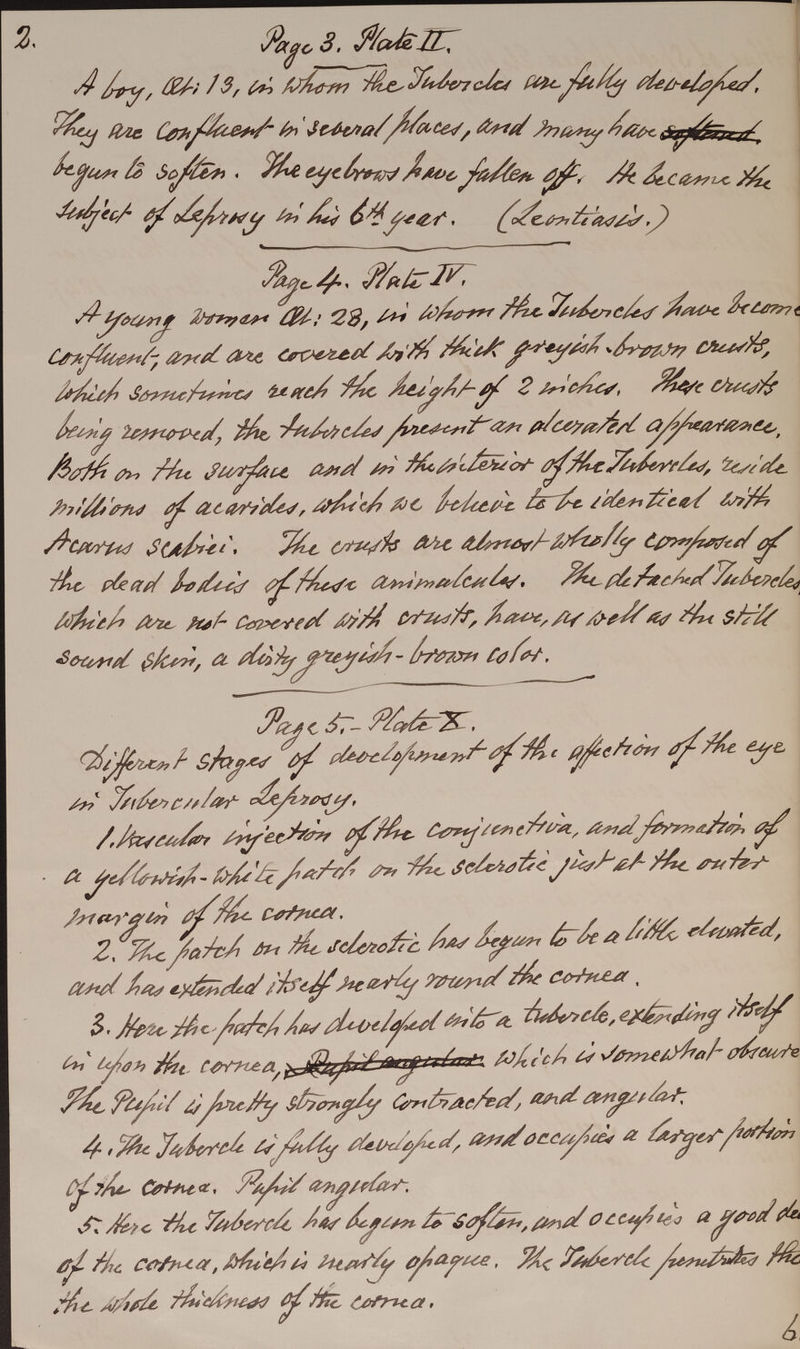 2.
Page 3. Plate II.
A boy, Æt: 13, in whom the Tubercles are fully developed.
They are confluent in several places, and many have softened
begun to soften. The eyebrows have fallen off. He became the
subject of Leprosy in his 6th year. (Leontiasis.)
Page 4. Plate IV.
A young woman Æt: 28, in whom the Tubercles have become
confluent, and are covered with thick greyish-brown crusts,
which sometimes reach the height of 2 inches. These crusts
being removed, the tubercles present an ulcerated appearance.
Both on the surface and in the interior of the Tubercles, reside
millions of acarides, which we believe to be identical with
Acarus Scabiei. The crusts are almost wholly composed of
the dead bodies of these animalcules. The detached Tubercles
which are not covered with crusts, have, as well as the still
sound skin, a dirty greyish-brown color.
Page 5.- Plate X.
Different stages of development of the affection of the eye
in Tubercular Leprosy.
1. Vascular injection of the conjunctiva, and formation of
a yellowish-white patch on the sclerotic just at the outer
margin of the cornea.
2. The patch on the sclerotic has begun to be a little elevated,
and has extended itself nearly round the cornea.
3. Here the patch has developed into a tubercle, extending itself
in upon the cornea, Pupil angular which is somewhat obscure
The Pupil is pretty strongly contracted, and angular.
4. The Tubercle is fully developed, and occupies a larger portion
of the cornea. Pupil angular.
5. Here the Tubercle has begun to soften, and occupies a good de
of the cornea, which is nearly opaque. The Tubercle penetrates the
the whole thickness of the cornea.
6